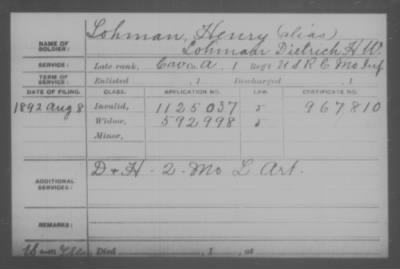 Lohman, Henry (alias)
NAME OF SOLDIER: Lohman Dietrich H W.
SERVICE: Late rank, Cav Co. A, 1 Reg't U S R C Mo Inf
TERM OF SERVICE: Enlisted , 1 Discharged , 1
DATE OF FILING. CLASS. APPLICATION NO. LAW. CERTIFICATE NO.
1892 Aug 8 Invalid, 1125037 5 967,810
Widow, 592998 5
Minor,
ADDITIONAL SERVICES: D + H - 2 - Mo L Art.
REMARKS:
Died , 1 , at